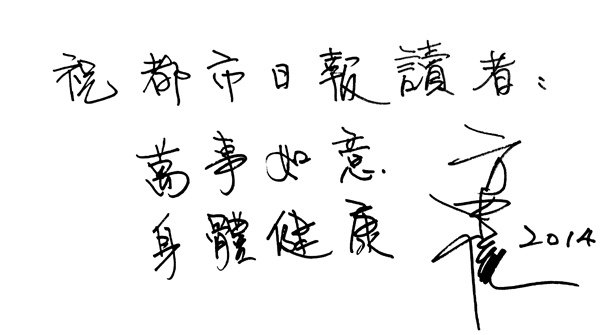 祝都市日報讀者：
萬事如意
身體健康
2014